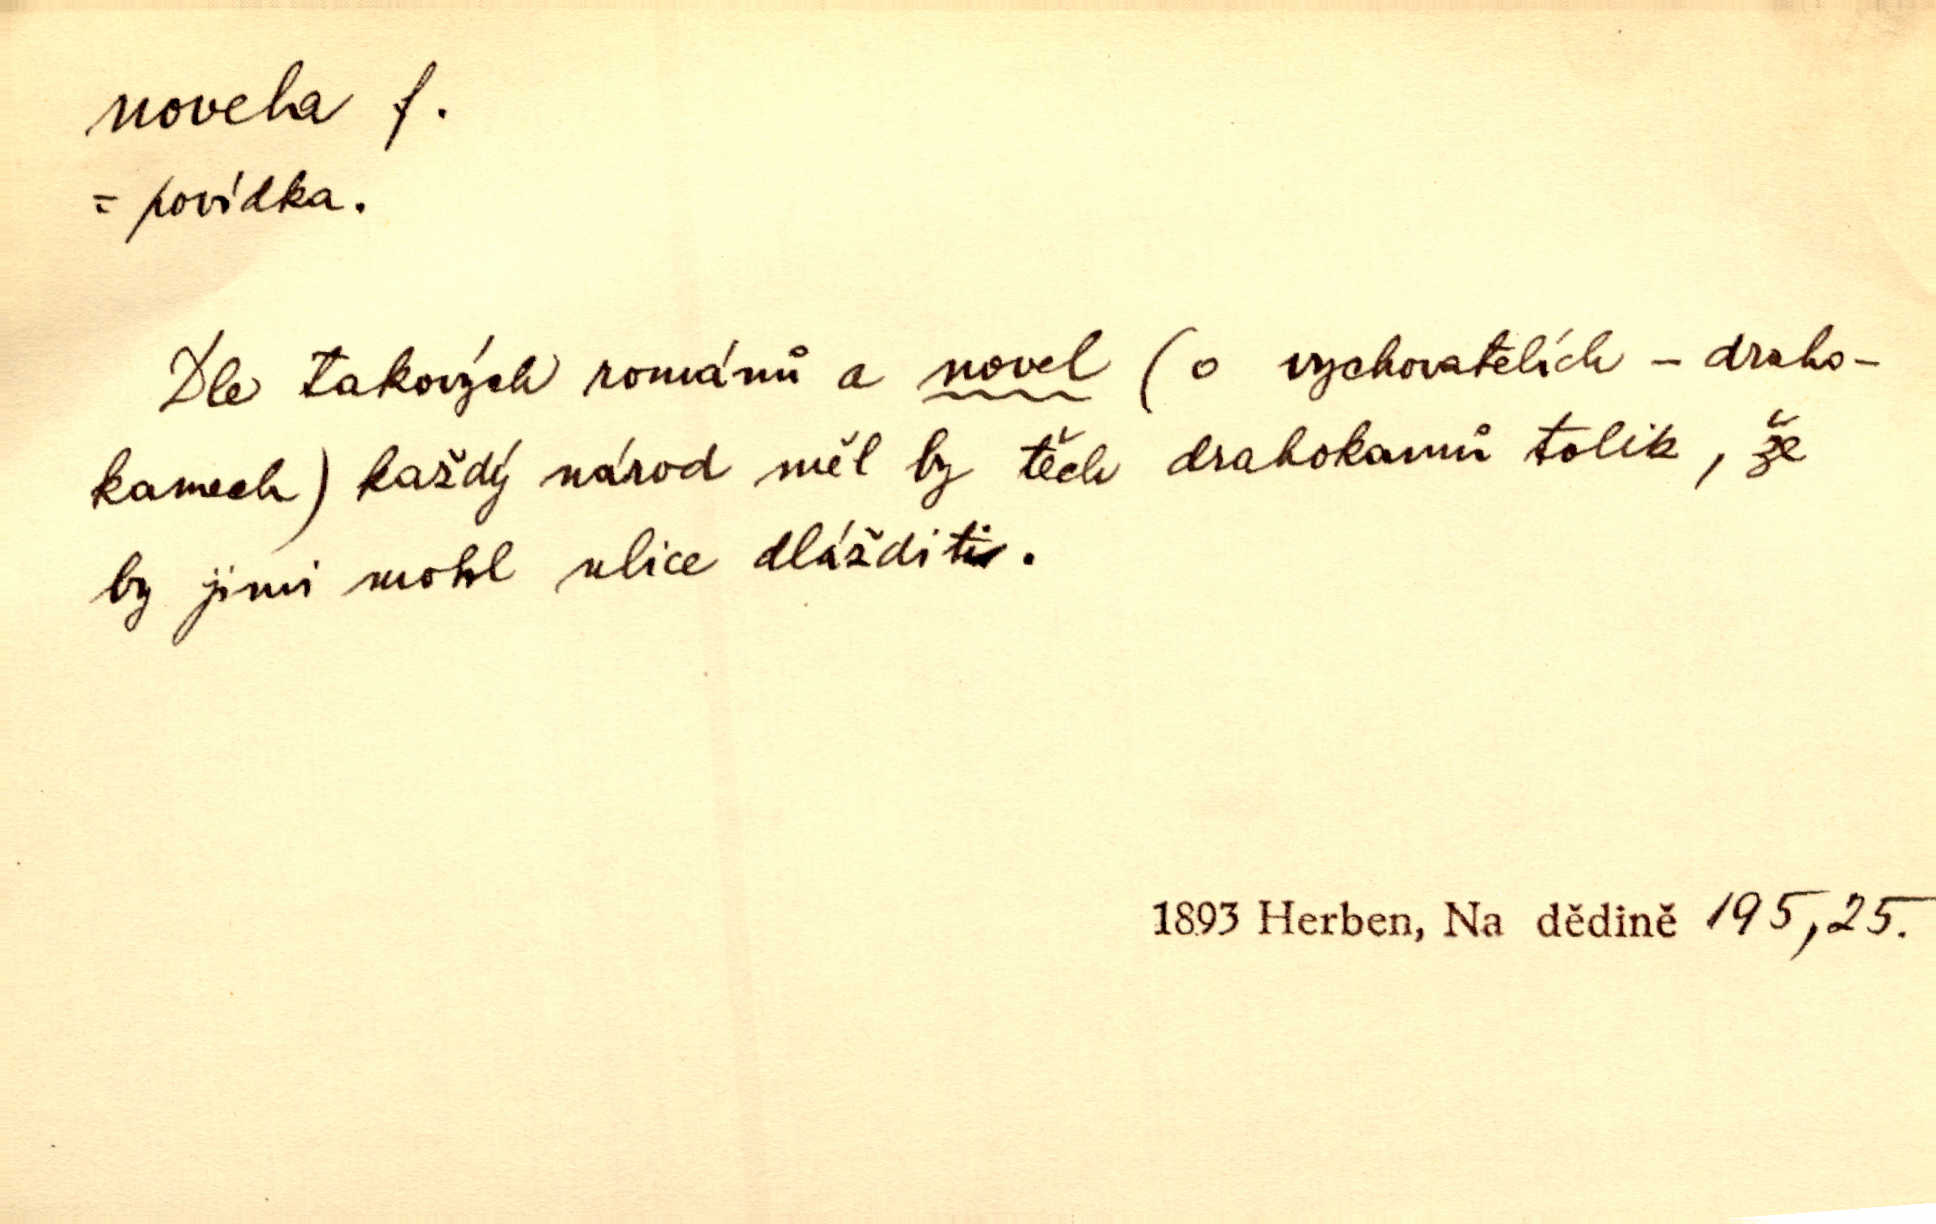 novela f.
= povídka.
Dle takových románů a novel (o vychovatelích – draho-
kamech) každý národ měl by těch drahokamů tolik, že
by jimi mohl ulice dlážditi.
1893 Herben, Na dědině 195,25.